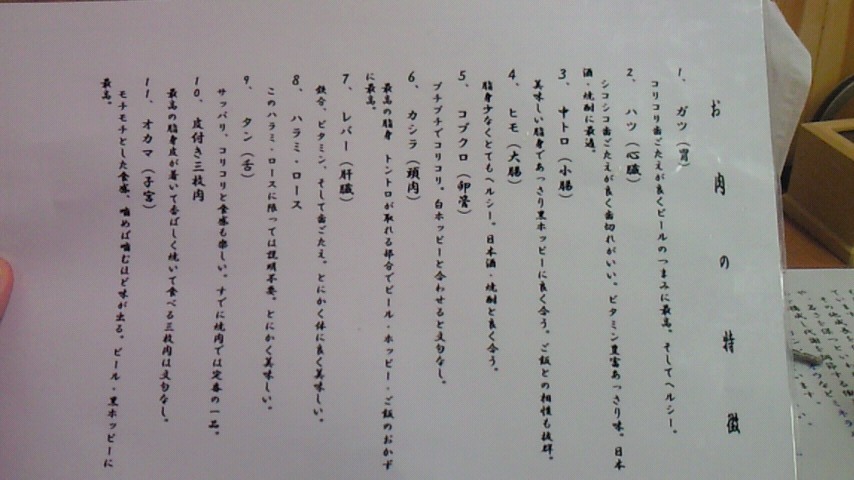 お肉の特徴
1、ガツ（胃）
コリコリ歯ごたえが良くビールのつまみに最高。そしてヘルシー。
2、ハツ（心臓）
シコシコ歯ごたえが良く歯切れがいい。ビタミン豊富あっさり味。日本
酒・焼酎に最適。
3、中トロ（小腸）
美味しい脂身であっさり黒ホッピーに良く合う。ご飯との相性も抜群。
4、ヒモ（大腸）
脂身少なくとてもヘルシー。日本酒・焼酎と良く合う。
5、コブクロ（卵管）
プチプチでコリコリ。白ホッピーと合わせると文句なし。
6、カシラ（頭肉）
最高の脂身 トントロが取れる部分でビール・ホッピー・ご飯のおかず
に最高。
7、レバー（肝臓）
鉄分、ビタミン、そして歯ごたえ。とにかく体に良く美味しい。
8、ハラミ・ロース
このハラミ・ロースに限っては説明不要。とにかく美味しい。
9、タン（舌）
サッパリ、コリコリと食感も楽しい。すでに焼肉では定番の一品。
10、皮付き三枚肉
最高の脂身皮が着いて香ばしく焼いて食べる三枚肉は文句なし。
11、オカマ（子宮）
モチモチとした食感、噛めば噛むほど味が出る。ビール・黒ホッピーに
最高。